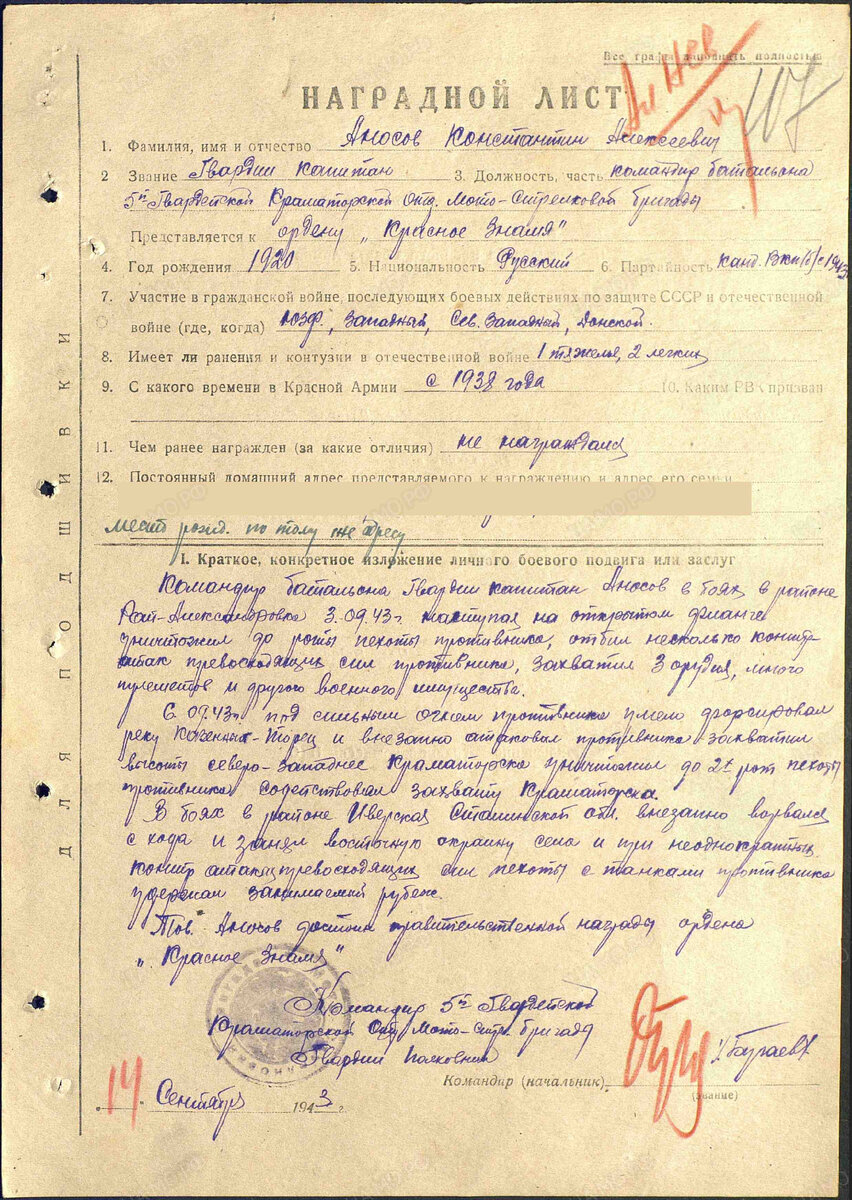 Все графы заполнять полностью
107
НАГРАДНОЙ ЛИСТ
1. Фамилия, имя и отчество Аносов Константин Алексеевич
2 Звание Гвардии капитан 3. Должность, часть командир батальона
5й Гвардейской Краматорской Отд. Мото-Стрелковой бригады
Представляется к ордену „Красное Знамя"
4. Год рождения 1920 5. Национальность Русский 6. Партийность канд. Вкп(б) с 1943
7. Участие в гражданской войне, последующих боевых действиях по защите СССР и отечественной
войне (где, когда) ЮЗФ, Западный, Сев. Западный, Донской.
8. Имеет ли ранения и контузии в отечественной войне 1 тяжелое, 2 легких
9. С какого времени в Красной Армии с 1938 года 10. Каким РВК призван
11. Чем ранее награжден (за какие отличия) не награждался
12. Постоянный домашний адрес представляемого к награждению и адрес его семьи
Место рожд. по тому же адресу
I. Краткое, конкретное изложение личного боевого подвига или заслуг
Командир батальона Гвардии капитан Аносов в боях в районе
Рай-Александровка 3.09.43г. наступая на открытом фланге
уничтожил до роты пехоты противника, отбил несколько контр-
атак превосходящих сил противника, захватил 3 орудия, много
пулеметов и другого военного имущества.
6.09.43г. под сильным огнем противника умело форсировал
реку Казенный-Торец и внезапно атаковал противника захватил
высоты северо-западнее Краматорска уничтожил до 2х рот пехоты
противника содействовал захвату Краматорска.
В боях в районе Иверская Сталинской обл. внезапно ворвался
с хода и занял восточную окраину села и при неоднократных
контр атаках превосходящих сил пехоты с танками противника
удержал занимаемый рубеж.
Тов. Аносов достоин правительственной награды ордена
„Красное Знамя"
Командир 5й Гвардейской
Краматорской Отд. Мото-стр. бригады
Гвардии полковник
Командир (начальник)
(звание)
14 Сентября 1943 г.
ДЛЯ ПОДШИВКИ